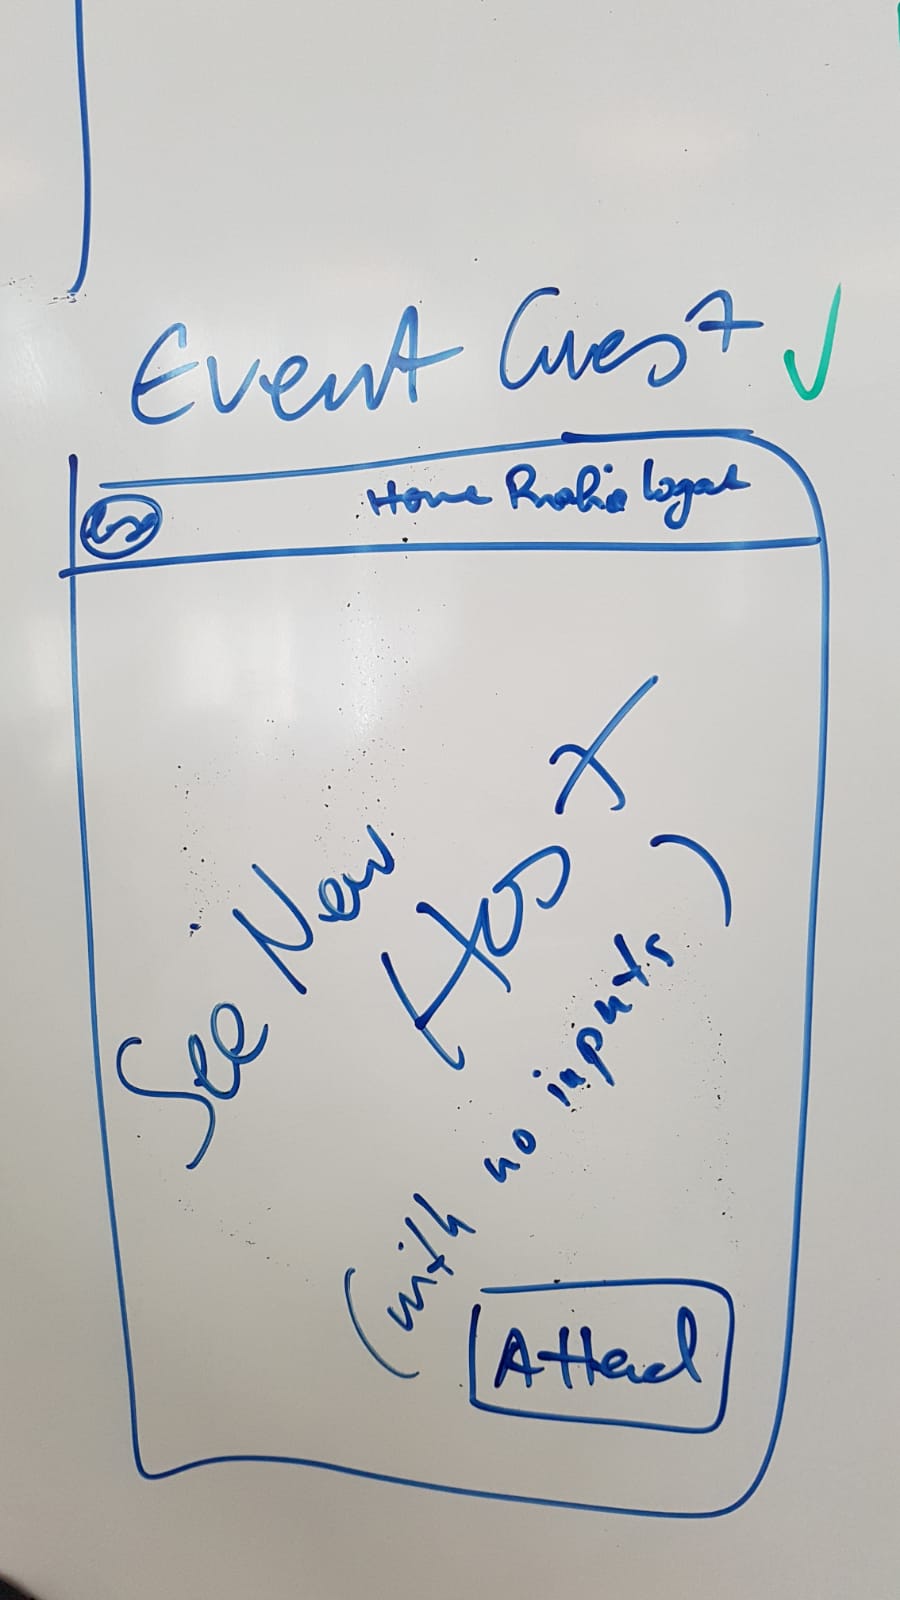 Event Guest
Home Profile Logout
See New
Host
(with no inputs)
Attend